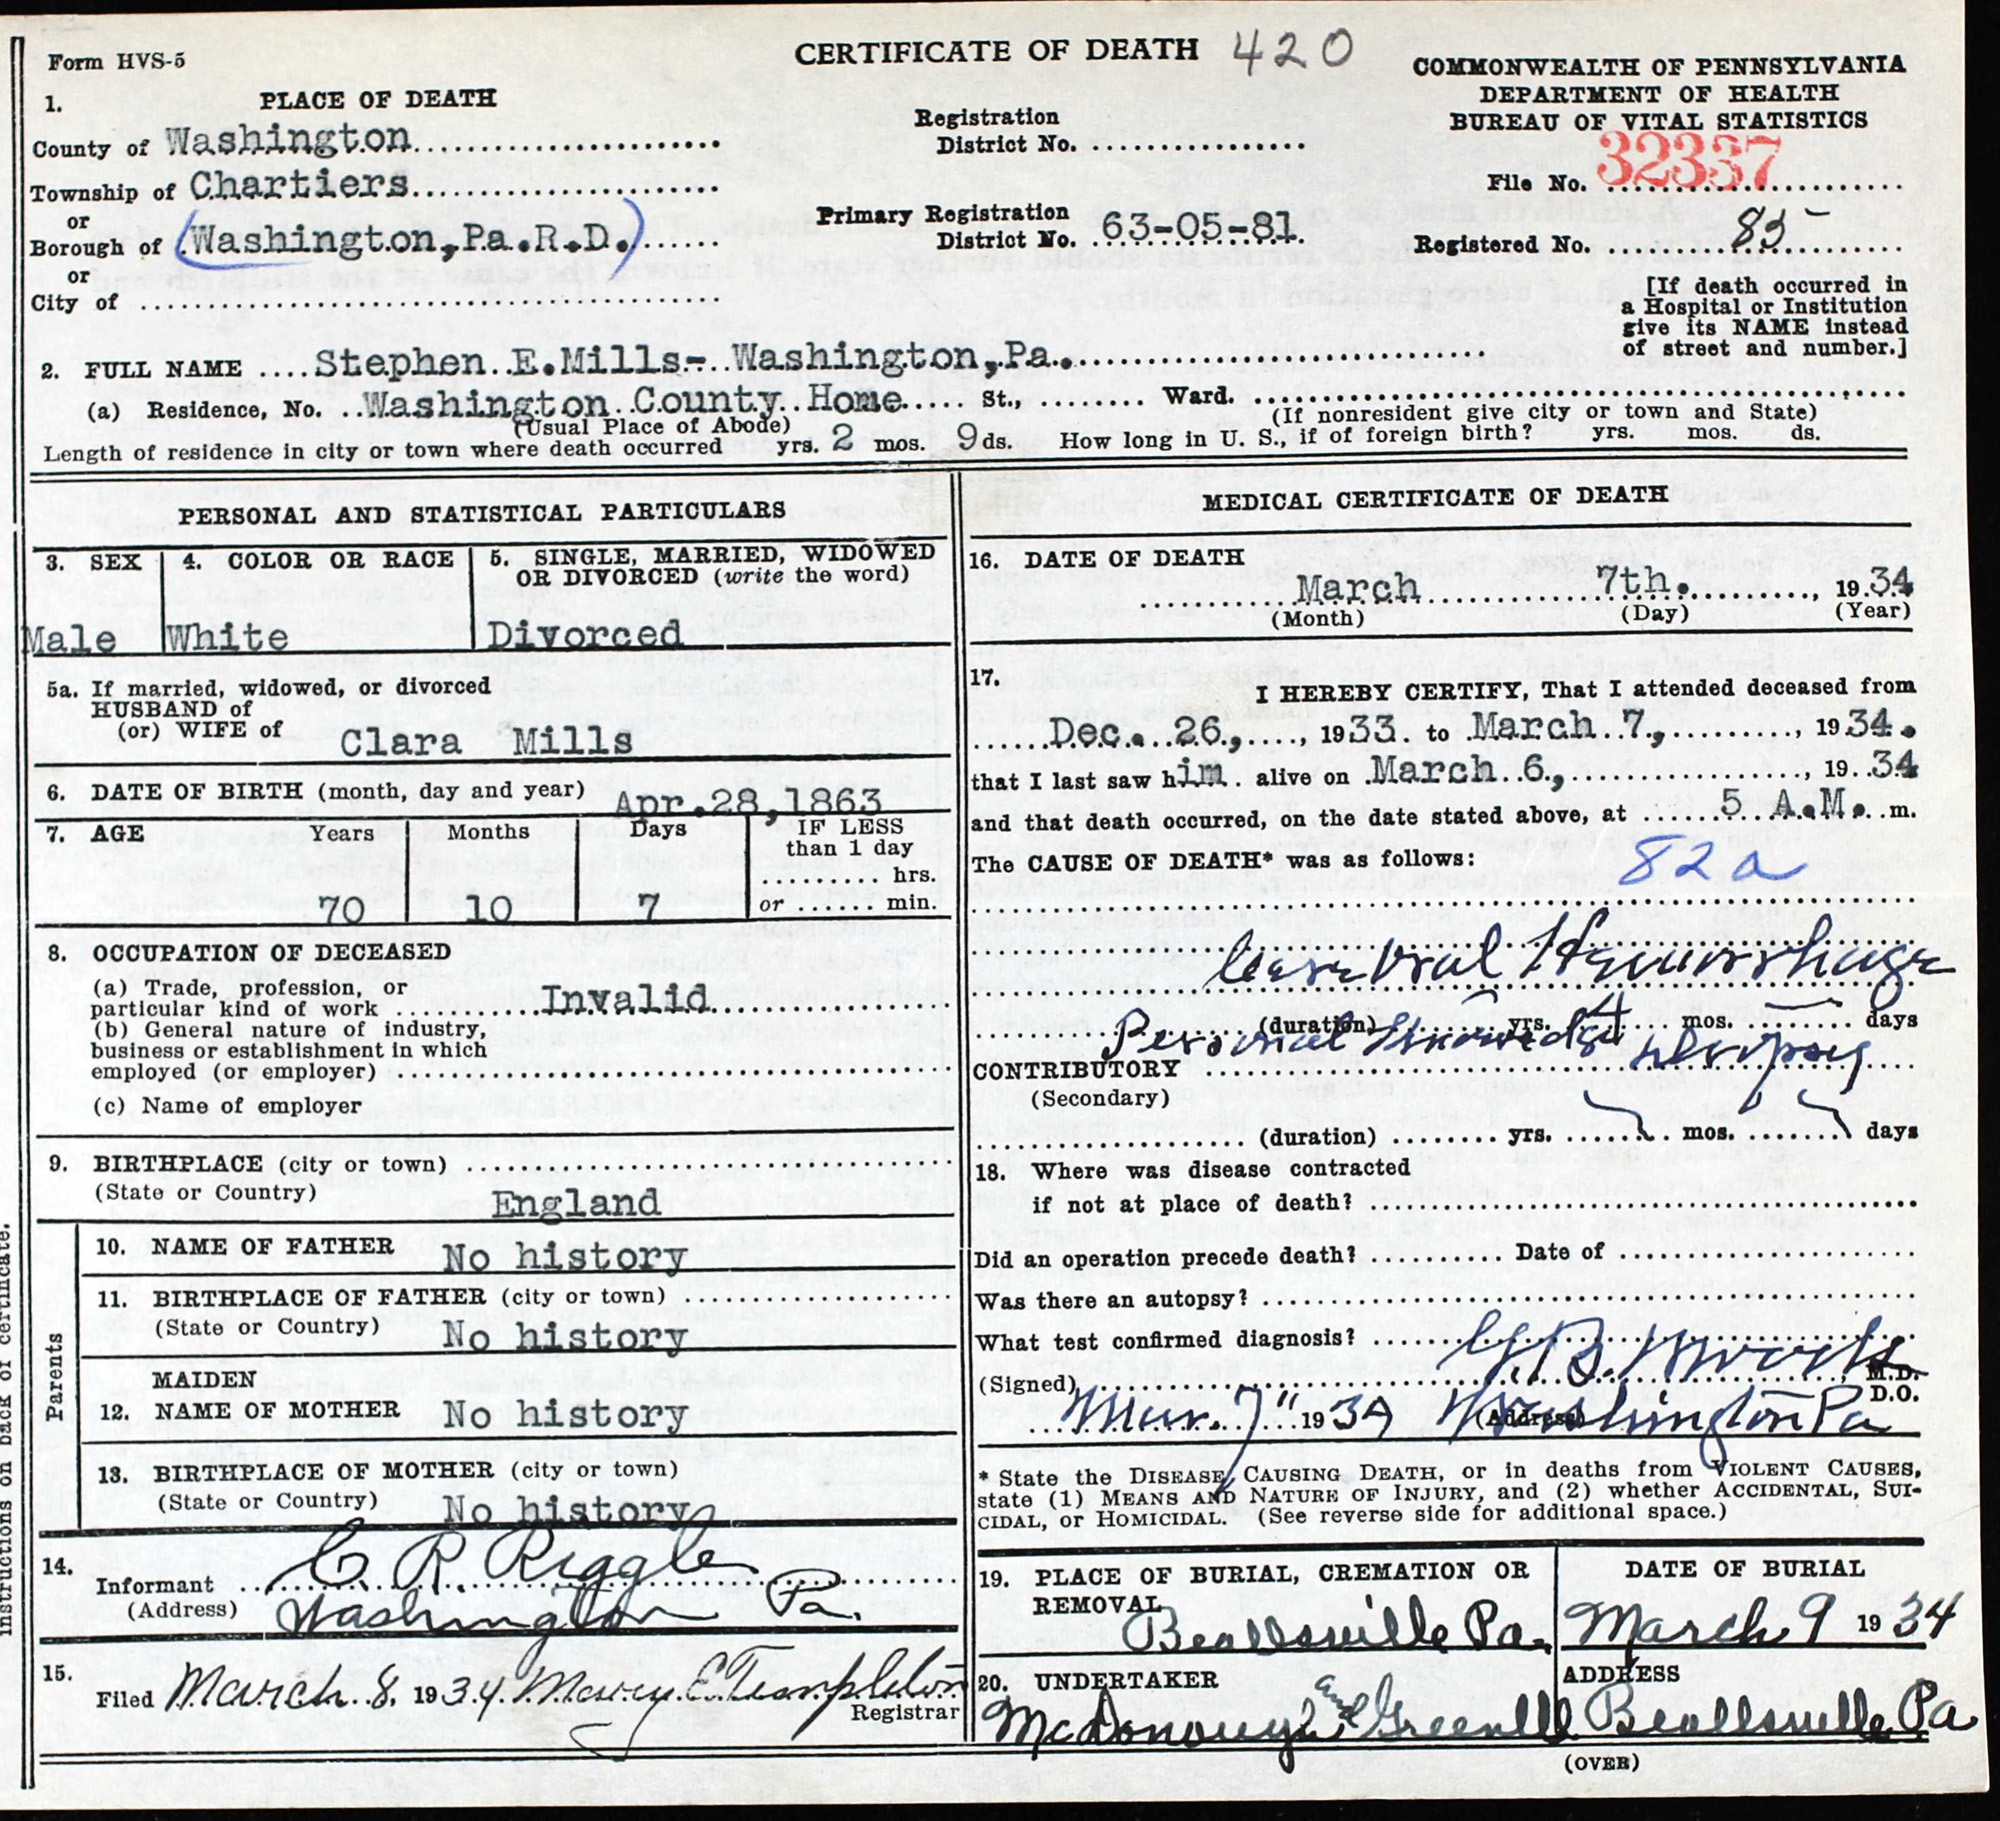 Form HVS-5
CERTIFICATE OF DEATH 420
COMMONWEALTH OF PENNSYLVANIA
DEPARTMENT OF HEALTH
BUREAU OF VITAL STATISTICS
1. PLACE OF DEATH
County of Washington
Township of Chartiers
or
Borough of (Washington,Pa.R.D.)
or
City of
Registration
District No.
Primary Registration
District No. 63-05-81.
File No. 32337
Registered No. 85
[If death occurred in
a Hospital or Institution
give its NAME instead
of street and number.]
2. FULL NAME Stephen E.Mills- Washington,Pa.
(a) Residence, No. Washington County Home St., Ward.
(Usual Place of Abode) (If nonresident give city or town and State)
Length of residence in city or town where death occurred yrs. 2 mos. 9 ds. How long in U. S., if of foreign birth? yrs. mos. ds.
PERSONAL AND STATISTICAL PARTICULARS
3. SEX
Male
4. COLOR OR RACE
White
5. SINGLE, MARRIED, WIDOWED
OR DIVORCED (write the word)
Divorced
5a. If married, widowed, or divorced
HUSBAND of
(or) WIFE of Clara Mills
6. DATE OF BIRTH (month, day and year) Apr.28,1863
7. AGE Years Months Days IF LESS
than 1 day
hrs.
70 10 7 or min.
8. OCCUPATION OF DECEASED
(a) Trade, profession, or
particular kind of work Invalid
(b) General nature of industry,
business or establishment in which
employed (or employer)
(c) Name of employer
9. BIRTHPLACE (city or town)
(State or Country) England
Parents
10. NAME OF FATHER No history
11. BIRTHPLACE OF FATHER (city or town)
(State or Country) No history
MAIDEN
12. NAME OF MOTHER No history
13. BIRTHPLACE OF MOTHER (city or town)
(State or Country) No history
14. Informant C R Riggle
(Address) Washington Pa.
15. Filed March 8, 1934. Mary E. Templeton
Registrar
MEDICAL CERTIFICATE OF DEATH
16. DATE OF DEATH
March 7th. , 1934
(Month) (Day) (Year)
17. I HEREBY CERTIFY, That I attended deceased from
Dec. 26, 1933. to March 7, , 1934.
that I last saw him alive on March 6, , 19 34
and that death occurred, on the date stated above, at 5 A.M. m.
The CAUSE OF DEATH* was as follows: 82a
Cerebral Hemorrhage
(duration) yrs. mos. days
Personal Knowledge
CONTRIBUTORY Dropsy
(Secondary)
(duration) yrs. mos. days
18. Where was disease contracted
if not at place of death?
Did an operation precede death? Date of
Was there an autopsy?
What test confirmed diagnosis?
(Signed) M.D.
D.O.
Mar. 7" 1934 (Address) Washington Pa
* State the DISEASE CAUSING DEATH, or in deaths from VIOLENT CAUSES,
state (1) MEANS AND NATURE OF INJURY, and (2) whether ACCIDENTAL, SUI-
CIDAL, or HOMICIDAL. (See reverse side for additional space.)
19. PLACE OF BURIAL, CREMATION OR
REMOVAL
Beallsville Pa.
DATE OF BURIAL
March 9 1934
20. UNDERTAKER
McDonough and Greenlee
ADDRESS
Beallsville Pa
(OVER)
instructions on back of certificate.